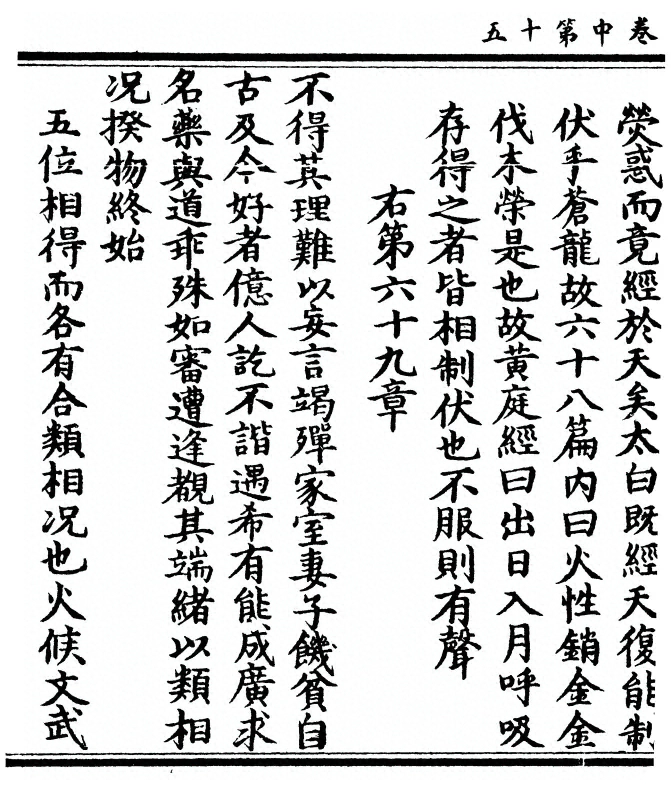 卷中第十五
熒惑而竟經於天矣太白既經天復能制
伏乎蒼龍故六十八篇內曰火性銷金金
伐木榮是也故黃庭經曰出日入月呼吸
存得之者皆相制伏也不服則有聲
右第六十九章
不得其理難以妄言竭殫家室妻子饑貧自
古及今好者億人訖不諧遇希有能成廣求
名藥與道乖殊如審遭逢覩其端緒以類相
况揆物終始
五位相得而各有合類相况也火候文武